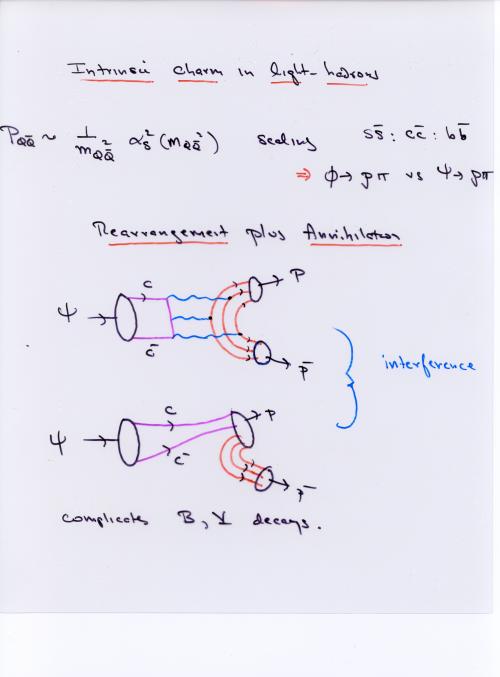 Intrinsic charm in light-hadrons
P_{QQ̄} ~ 1/m²_{QQ̄} α_s²(m²_{QQ̄}) scaling ss̄ : cc̄ : bb̄
⇒ φ→ρπ vs ψ→ρπ
Rearrangement plus Annihilation
c
p
ψ
c̄
p̄
interference
c
p
ψ
c̄
p̄
complicates B, Υ decays.